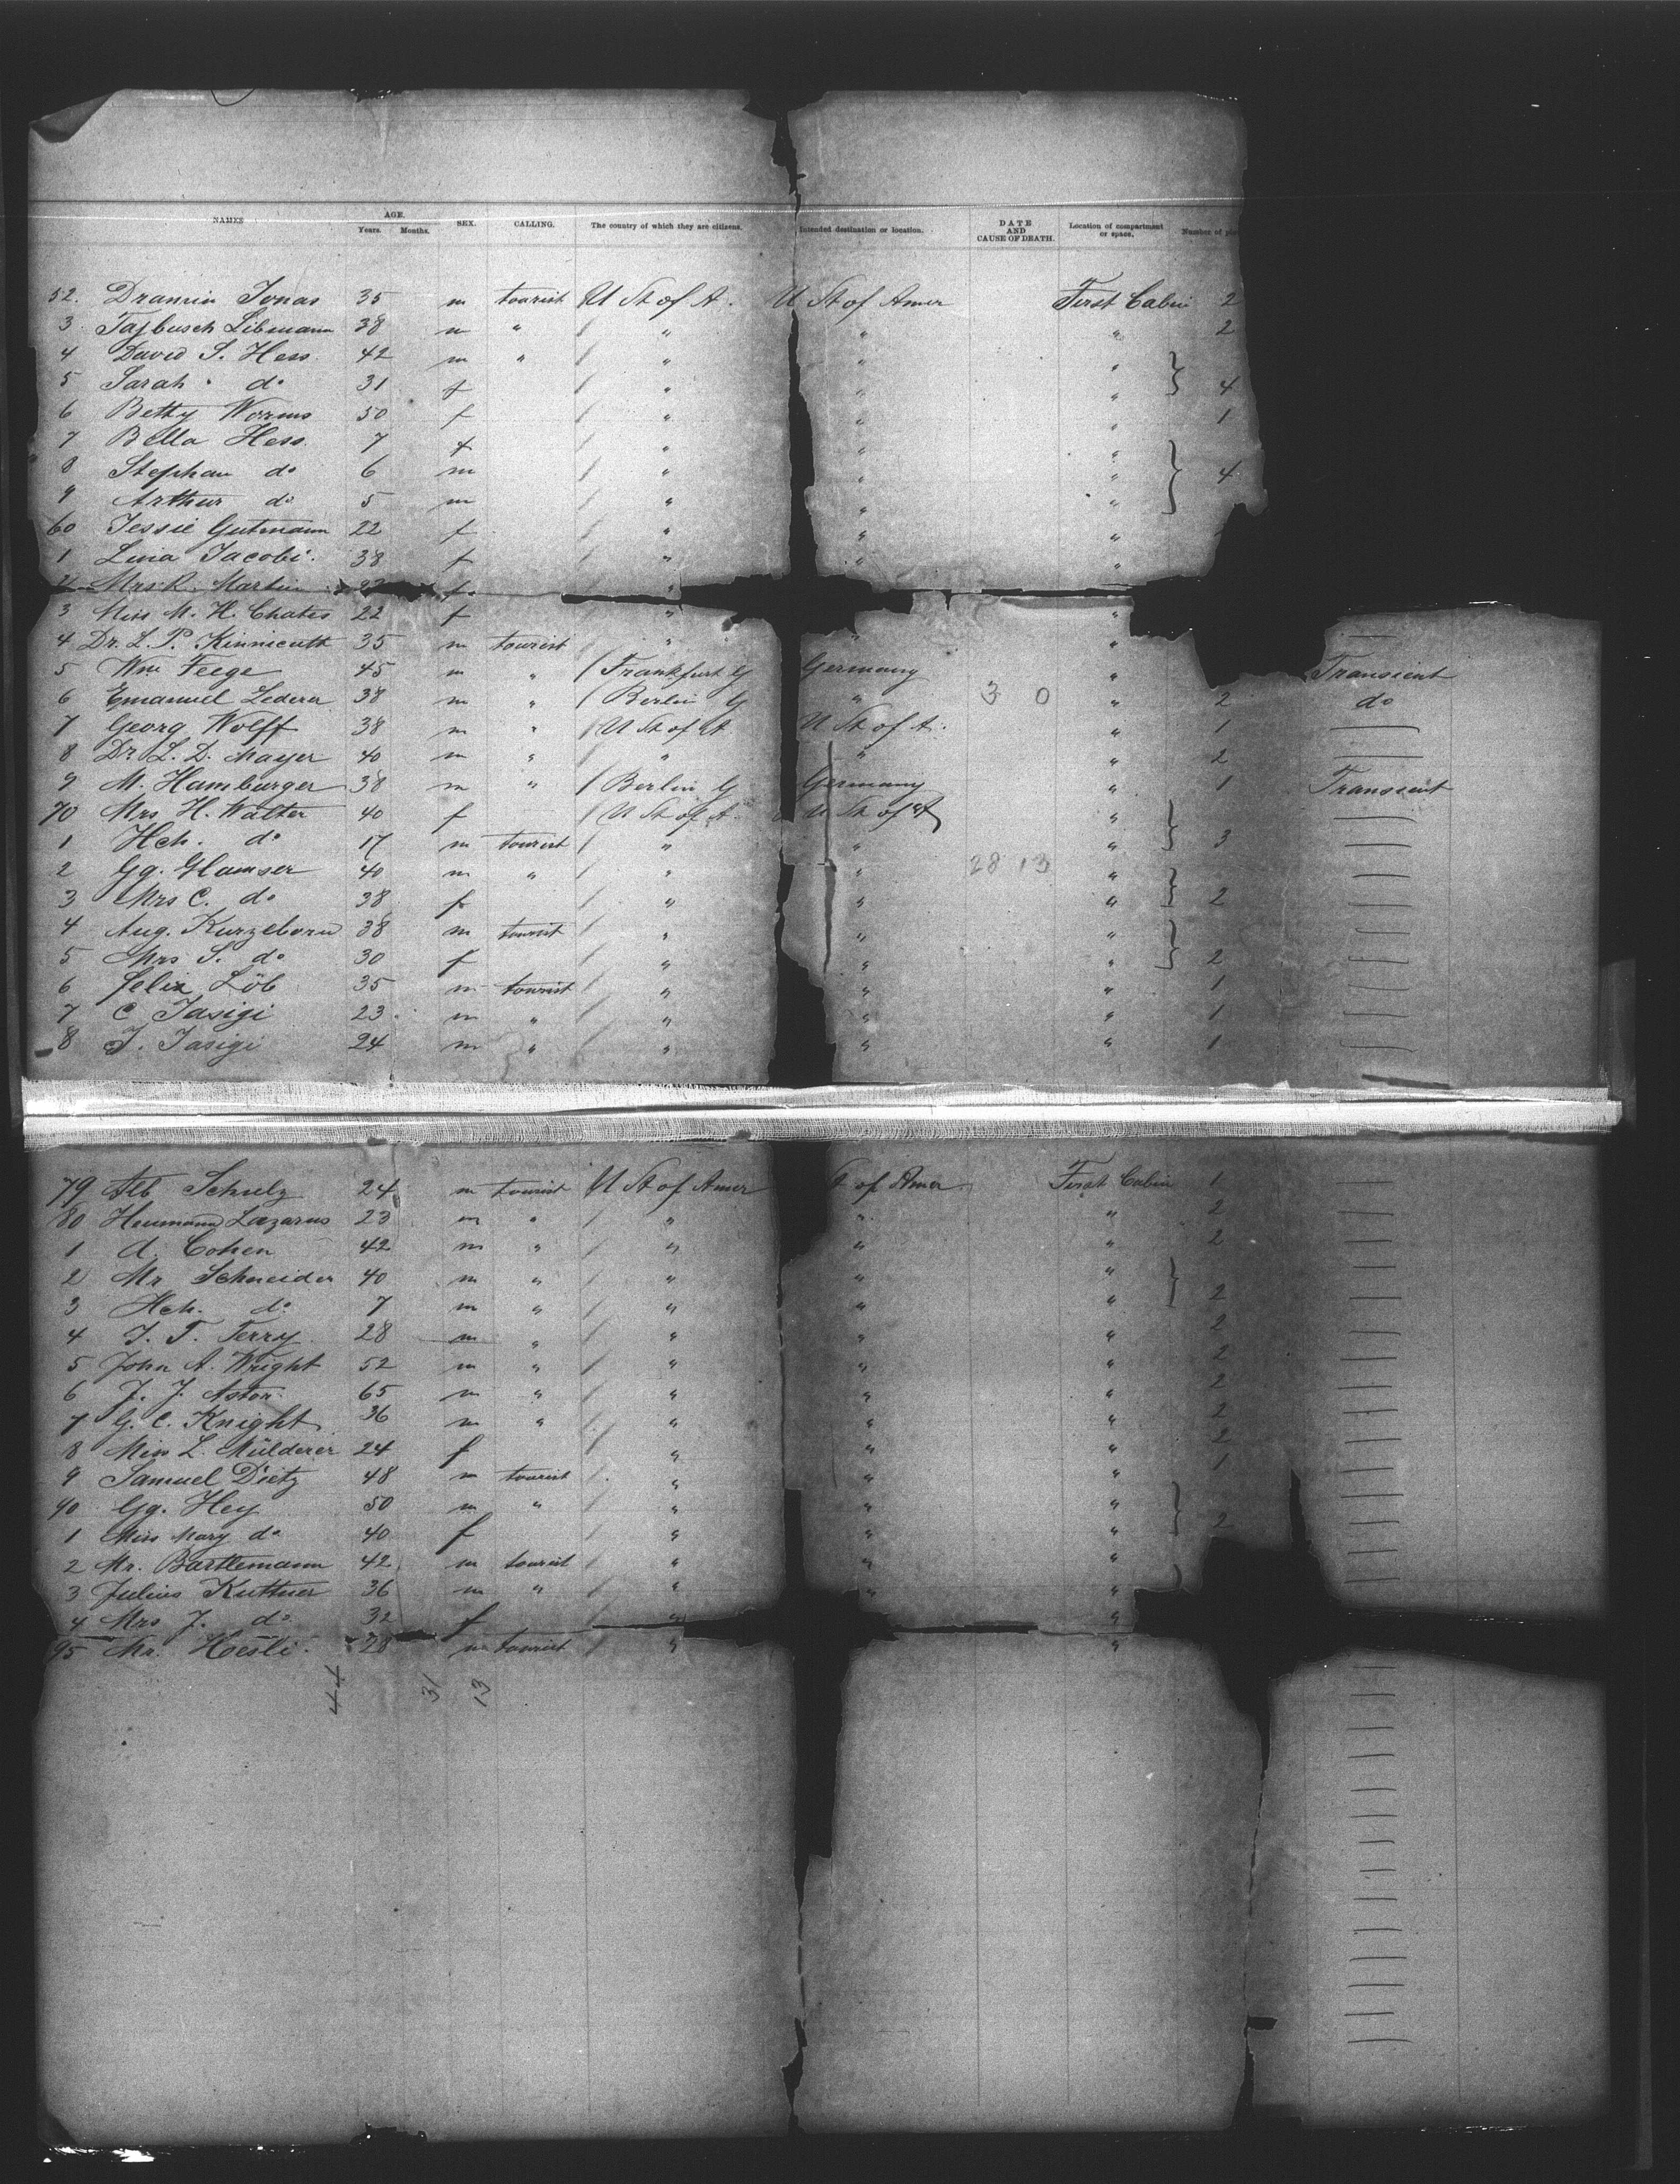 NAMES AGE. Years. Months. SEX. CALLING. The country of which they are citizens. Intended destination or location. DATE AND CAUSE OF DEATH. Location of compartment or space. Number of
52. Dramin Jonas 35 m tourist U St of A. U St of Amer First Cabin 2
3 Tajbusch Libmann 38 m " / " " " 2
4 David S. Hess. 42 m " / " " "
5 Sarah " do 31 f / " " " } 4
6 Betty Worms 50 f / " " " 1
7 Bella Hess. 7 f / " " "
8 Stephan do 6 m / " " " } 4
9 Arthur do 5 m / " " "
60 Jessie Gutmann 22 f / " " "
1 Lina Jacobi. 38 f / " " "
2 Mrs R. Martin f "
3 Miss M. H. Chates 22 f / " "
4 Dr. L. P. Kinnicutt 35 m tourist / " " " —
5 Wm Feege 45 m " / Frankfurt G Germany " Transient
6 Emanuel Lederer 38 m " / Berlin G " 3 0 " 2 do
7 Georg Wolff 38 m " / U St of A U St of A. " 1 —
8 Dr. L. D. Mayer 40 m " / " " " 2 —
9 M. Hamburger 38 m " / Berlin G Germany " 1 Transient
70 Mrs H. Walter 40 f / U St of A. U St of A " —
1 Hch. do 17 m tourist / " " " } 3 —
2 Gg. Glamser 40 m " / " " 28 13 " —
3 Mrs C. do 38 f / " " " } 2 —
4 Aug. Kurzeborn 38 m tourist / " " " —
5 Mrs S. do 30 f / " " " } 2 —
6 Felix Löb 35 m tourist / " " " 1 —
7 C Jasigi 23 m " / " " " 1 —
8 J. Jasigi 24 m " / " " " 1 —
79 Alb Schulz 24 m tourist U St of Amer St of Amer First Cabin 1 —
80 Heumann Lazarus 23 m " / " " " 2 —
1 A. Cohen 42 m " / " " " 2 —
2 Mr Schneider 40 m " / " " " —
3 Hch. do 7 m " / " " " } 2 —
4 J. T. Terry 28 m " / " " " 2 —
5 John A. Wright 52 m " / " " " 2 —
6 J. J. Astor 65 m " / " " " 2 —
7 G. C. Knight 36 m " / " " " 2 —
8 Miss L. Mülderer 24 f / " " " 2 —
9 Samuel Dietz 48 m tourist / " " " 1 —
90 Gg. Hey 50 m " / " " " —
1 Miss Mary do 40 f / " " " } 2 —
2 Mr. Bartlemann 42 m tourist / " " " —
3 Julius Kuttner 36 m " / " " " —
4 Mrs J. do 32 f / " "
95 Mr. Hoesli. 28 m tourist " "
44 31 13